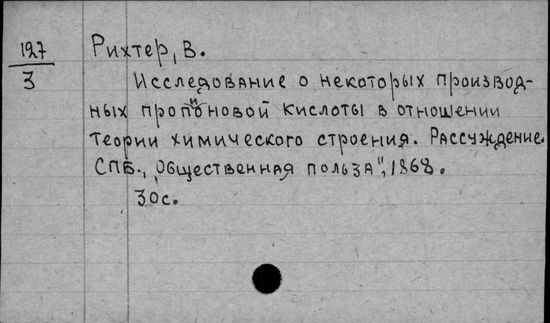 127
3
Рихтер, В.
Исследование о некоторых производ-
ных пропионовой кислоты в отношении
теории химического строения. Рассуждение.
СПБ., "Общественная польза", 1868.
30с.